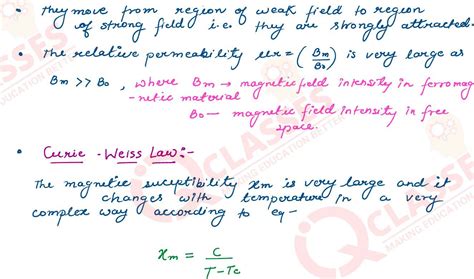 • they move from region of weak field to region
of strong field i.e. they are strongly attracted.
• the relative permeability μr = (Bm/B0) is very large as
Bm >> B0, where Bm → magnetic field intensity in ferromag
-netic material
B0 – magnetic field intensity in free
space.
• Curie - Weiss Law:-
The magnetic suceptibility Xm is very large and it
changes with temperature in a very
complex way according to eq –
Xm = C / T - Tc
IQ CLASSES
MAKING EDUCATION BETTER